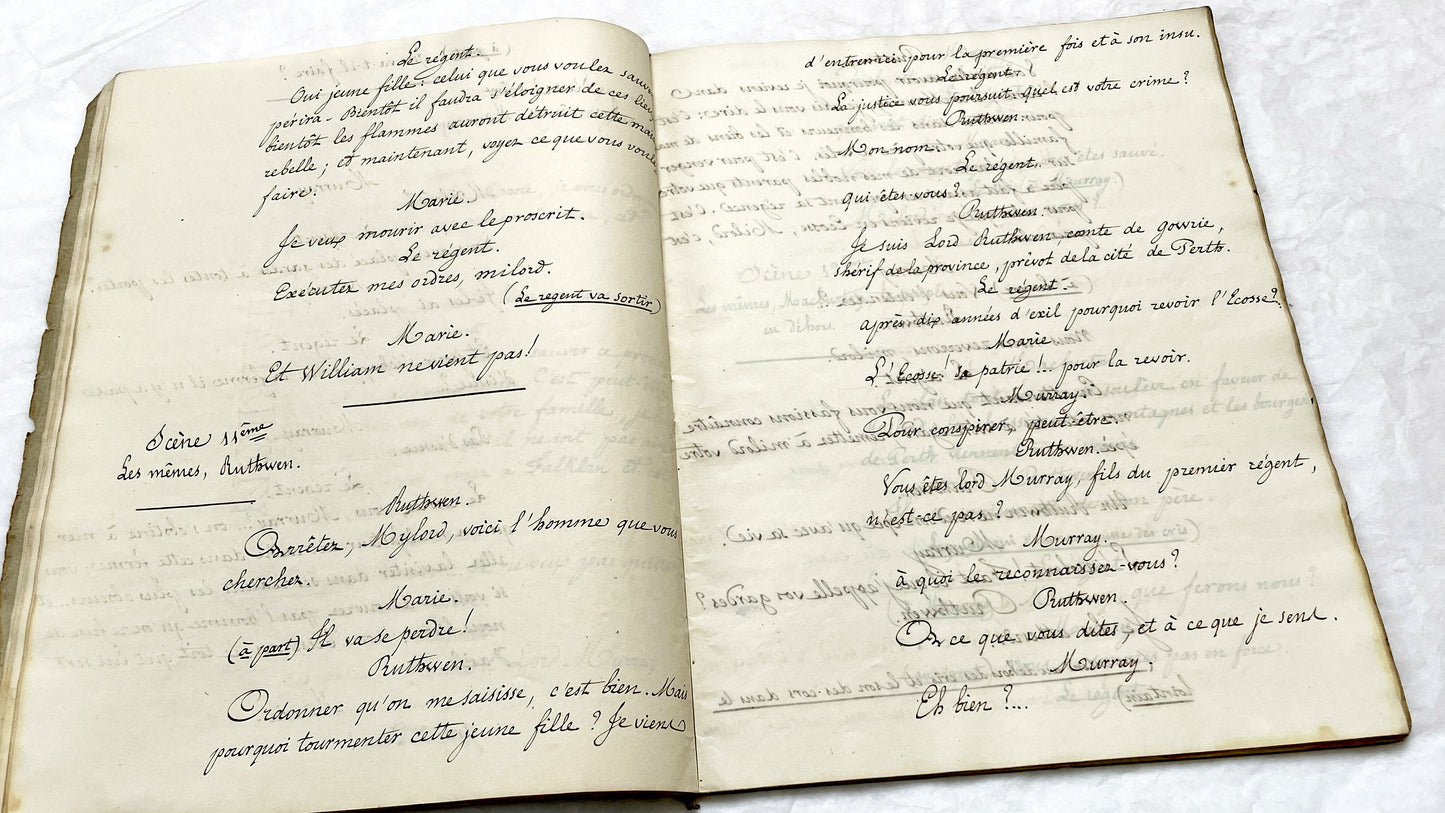 Le régent.
Oui jeune fille: celui que vous voulez sauver
périra - Bientôt il faudra s'éloigner de ces lieux
bientôt les flammes auront détruit cette
rebelle; et maintenant, voyez ce que vous voulez
faire.
Marie.
Je veux mourir avec le proscrit.
Le régent.
Executez mes ordres, milord.
(Le regent va sortir)
Marie.
Et William ne vient pas!
Scène 11ème
Les mêmes, Ruthwen.
Ruthwen.
Arrêtez, Mylord, voici l'homme que vous
cherchez.
Marie.
(à part) Il va se perdre!
Ruthwen.
Ordonner qu'on me saisisse, c'est bien. Mais
pourquoi tourmenter cette jeune fille? Je viens
d'entrer ici pour la première fois et à son insu.
Le régent.
La justice vous poursuit quel est votre crime?
Ruthwen.
Mon nom.
Le régent.
qui êtes-vous?
Ruthwen.
Je suis Lord Ruthwen, comte de gowrie,
shérif de la province, prévot de la cité de Perth.
Le régent.
après dix années d'exil pourquoi revoir l'Ecosse?
Marie
L'Ecosse! sa patrie!.. pour la revoir.
Murray.
Pour conspirer, peut-être.
Ruthwen.
Vous êtes lord Murray, fils du premier régent,
n'est-ce pas?
Murray.
à quoi le reconnaissez-vous?
Ruthwen.
à ce que vous dites, et à ce que je sens.
Murray.
Eh bien?...